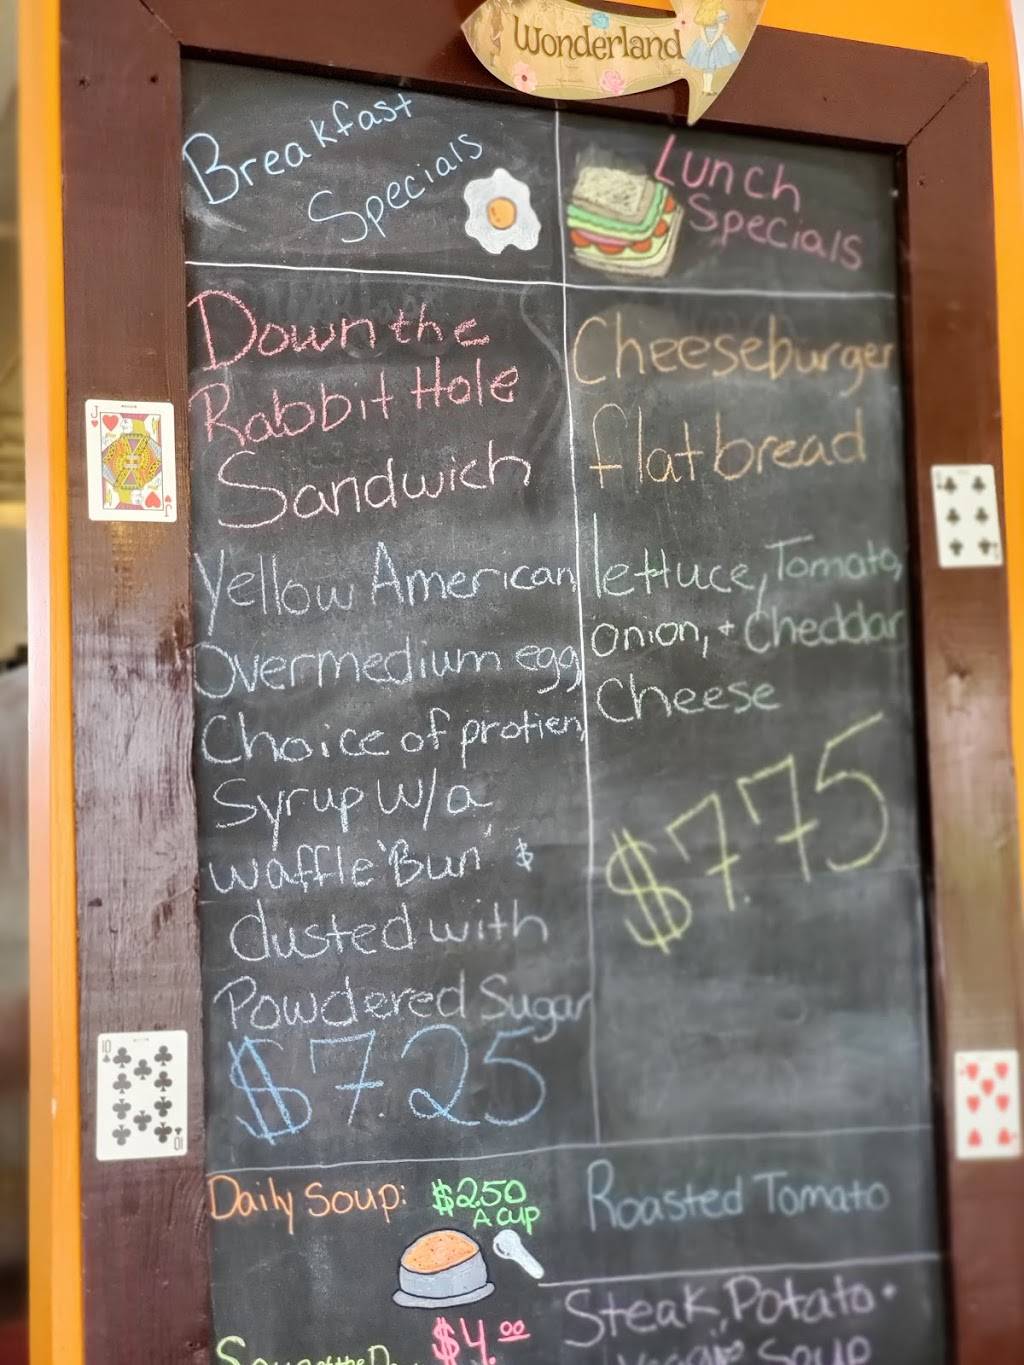 Wonderland
Breakfast
Specials
Lunch
Specials
Down the
Rabbit Hole
Sandwich
Yellow American,
Overmedium egg,
Choice of protien,
Syrup w/a
waffle 'Bun' &
dusted with
Powdered Sugar
$7.25
Cheeseburger
flatbread
lettuce, Tomato,
onion, + Cheddar
Cheese
$7.75
Daily Soup: $2.50
A CUP
Roasted Tomato
Soup of the Day
$4.00
Steak, Potato +
Veggie Soup
J
J
10
10